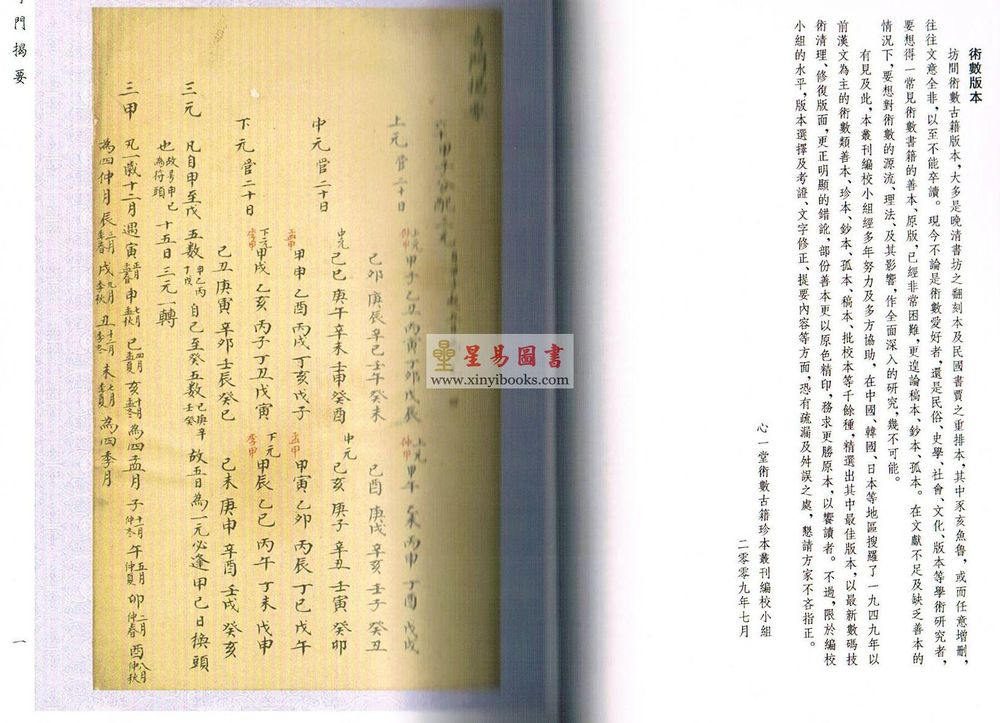 術數版本
坊間術數古籍版本，大多是晚清書坊之翻刻本及民國書賈之重排本，其中豕亥魚魯，或而任意增刪，
往往文意全非，以至不能卒讀。現今不論是術數愛好者，還是民俗、史學、社會、文化、版本等學術研究者，
要想得一常見術數書籍的善本、原版，已經非常困難，更遑論稿本、鈔本、孤本。在文獻不足及缺乏善本的
情況下，要想對術數的源流、理法、及其影響，作全面深入的研究，幾不可能。
有見及此，本叢刊編校小組經多年努力及多方協助，在中國、韓國、日本等地區搜羅了一九四九年以
前漢文為主的術數類善本、珍本、鈔本、孤本、稿本、批校本等千餘種，精選出其中最佳版本，以最新數碼技
術清理、修復版面，更正明顯的錯訛，部份善本更以原色精印，務求更勝原本，以饗讀者。不過，限於編校
小組的水平，版本選擇及考證、文字修正、提要內容等方面，恐有疏漏及舛誤之處，懇請方家不吝指正。
心一堂術數古籍珍本叢刊編校小組
二零零九年七月
上元 仲甲 甲子 乙丑 丙寅 丁卯 戊辰 上元 仲甲 甲午 乙未 丙申 丁酉 戊戌
上元管二十日
己卯 庚辰 辛巳 壬午 癸未 己酉 庚戌 辛亥 壬子 癸丑
中元 己巳 庚午 辛未 壬申 癸酉 中元 己亥 庚子 辛丑 壬寅 癸卯
中元管二十日
孟甲 甲申 乙酉 丙戌 丁亥 戊子 孟甲 甲寅 乙卯 丙辰 丁巳 戊午
下元 季甲 甲戌 乙亥 丙子 丁丑 戊寅 下元 季甲 甲辰 乙巳 丙午 丁未 戊申
下元管二十日
己丑 庚寅 辛卯 壬辰 癸巳 己未 庚申 辛酉 壬戌 癸亥
三元 凡自甲至戊五數 甲乙丙丁戊 自己至癸五數 己庚辛壬癸 故五日為一元必逢甲己日換頭
也 故号甲己為符頭 十五日三元一轉
三甲 凡一歲十二月遇寅 正月孟春 申 七月孟秋 巳 四月孟夏 亥 十月孟冬 為四孟月 子 十一月仲冬 午 五月仲夏 卯 二月仲春 酉 八月仲秋
為四仲月 辰 三月季春 戌 九月季秋 丑 十二月季冬 未 季夏 為四季月
門揭要
一
星易圖書
www.xinyibooks.com